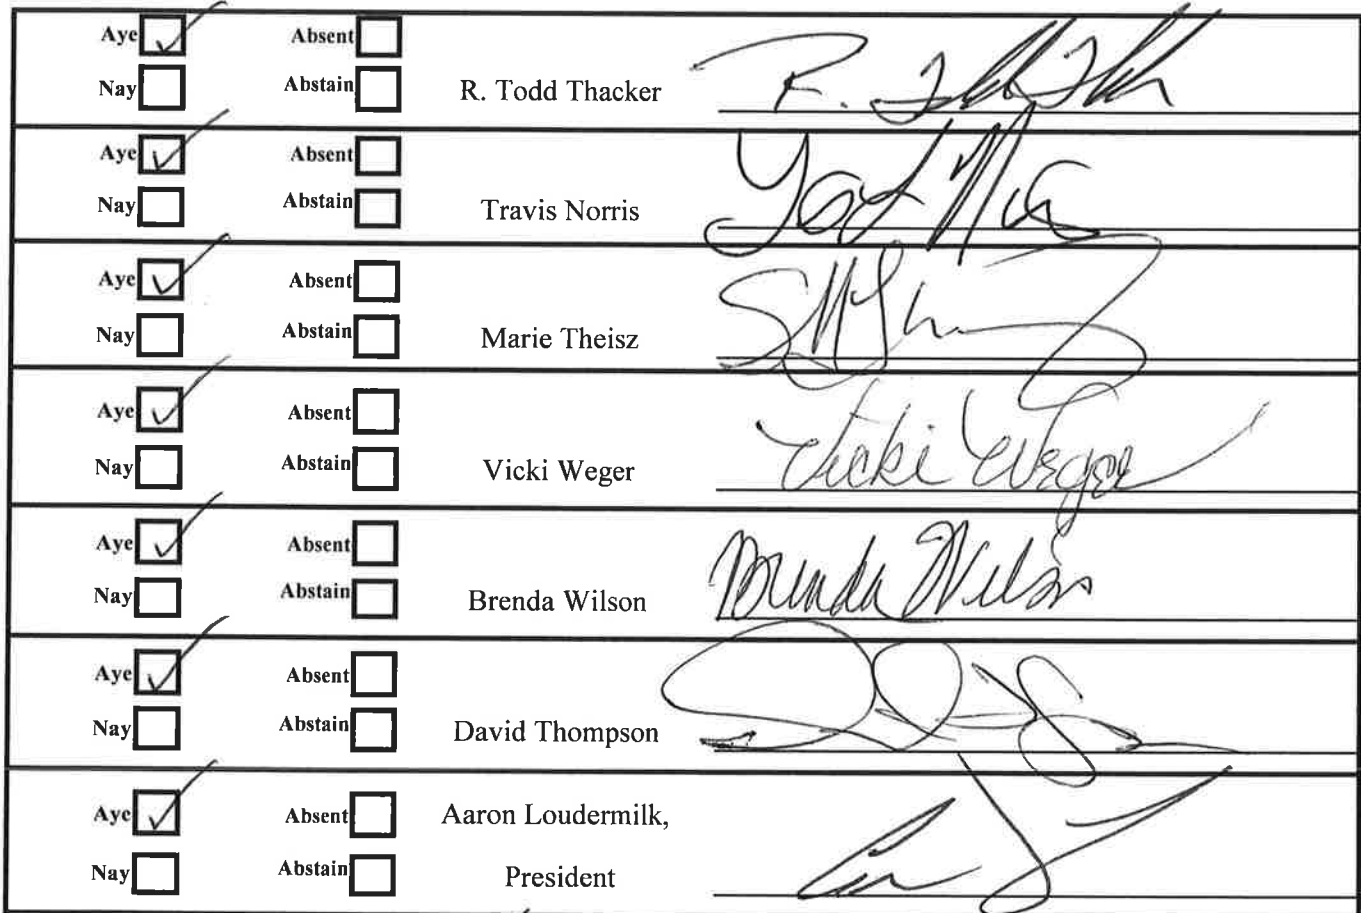 Aye Absent
Nay Abstain R. Todd Thacker R.
Aye Absent
Nay Abstain Travis Norris
Aye Absent
Nay Abstain Marie Theisz
Aye Absent
Nay Abstain Vicki Weger Vicki Weger
Aye Absent
Nay Abstain Brenda Wilson Brenda Wilson
Aye Absent
Nay Abstain David Thompson
Aye Absent Aaron Loudermilk,
Nay Abstain President